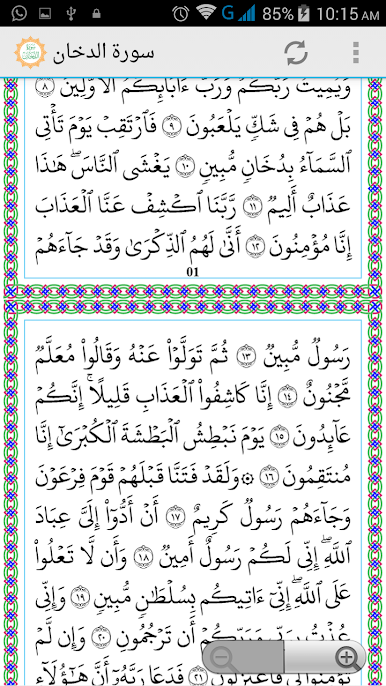 85% 10:15 AM
سورة الدخان
وَيُمِيتُ رَبُّكُمْ وَرَبُّ ءَابَآئِكُمُ ٱلْأَوَّلِينَ ٨
بَلْ هُمْ فِى شَكٍّ يَلْعَبُونَ ٩ فَٱرْتَقِبْ يَوْمَ تَأْتِى
ٱلسَّمَآءُ بِدُخَانٍ مُّبِينٍ ١٠ يَغْشَى ٱلنَّاسَ ۖ هَٰذَا
عَذَابٌ أَلِيمٌ ١١ رَّبَّنَا ٱكْشِفْ عَنَّا ٱلْعَذَابَ
إِنَّا مُؤْمِنُونَ ١٢ أَنَّىٰ لَهُمُ ٱلذِّكْرَىٰ وَقَدْ جَآءَهُمْ
01
رَسُولٌ مُّبِينٌ ١٣ ثُمَّ تَوَلَّوْا۟ عَنْهُ وَقَالُوا۟ مُعَلَّمٌ
مَّجْنُونٌ ١٤ إِنَّا كَاشِفُوا۟ ٱلْعَذَابِ قَلِيلًا ۚ إِنَّكُمْ
عَآئِدُونَ ١٥ يَوْمَ نَبْطِشُ ٱلْبَطْشَةَ ٱلْكُبْرَىٰٓ إِنَّا
مُنتَقِمُونَ ١٦ ۞ وَلَقَدْ فَتَنَّا قَبْلَهُمْ قَوْمَ فِرْعَوْنَ
وَجَآءَهُمْ رَسُولٌ كَرِيمٌ ١٧ أَنْ أَدُّوٓا۟ إِلَىَّ عِبَادَ
ٱللَّهِ ۖ إِنِّى لَكُمْ رَسُولٌ أَمِينٌ ١٨ وَأَن لَّا تَعْلُوا۟
عَلَى ٱللَّهِ ۖ إِنِّىٓ ءَاتِيكُم بِسُلْطَٰنٍ مُّبِينٍ ١٩ وَإِنِّى
عُذْتُ بِرَبِّى وَرَبِّكُمْ أَن تَرْجُمُونِ ٢٠ وَإِن لَّمْ
تُؤْمِنُوا۟ لِى فَٱعْتَزِلُونِ ٢١ فَدَعَا رَبَّهُۥٓ أَنَّ هَٰٓؤُلَآءِ